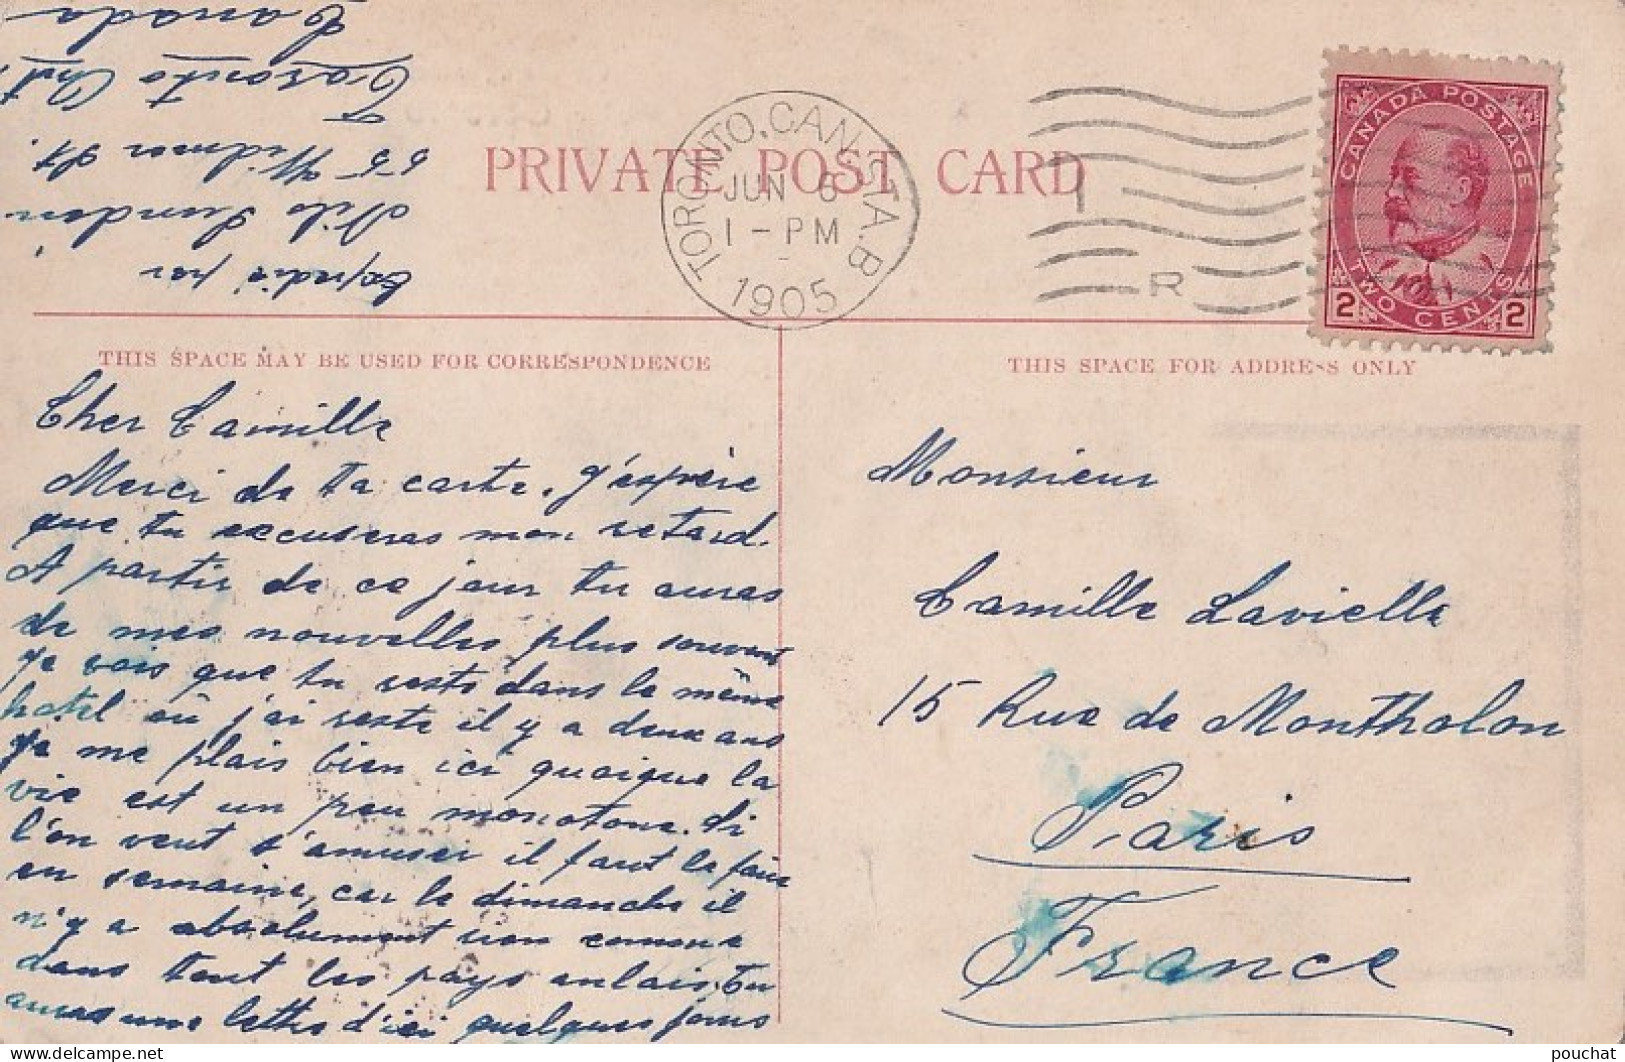 Expedié par
Nilo Lundari
55 Widmer St.
Toronto Ont.
Canada
PRIVATE POST CARD
TORONTO, CAN. STA. B
JUN 6
1-PM
1905
R
CANADA POSTAGE
TWO CENTS
2 2
THIS SPACE MAY BE USED FOR CORRESPONDENCE
THIS SPACE FOR ADDRESS ONLY
Cher Camille
Merci de ta carte. J'espère
que tu excuseras mon retard.
A partir de ce jour tu auras
de mes nouvelles plus souvent
Je vois que tu reste dans le même
hotel où j'ai resté il y a deux ans
Je me plais bien ici quoique la
vie est un peu monotone. Si
l'on veut s'amuser il faut le faire
en semaine, car le dimanche il
n'y a absolument rien comme
dans tout les pays anlais. Tu
auras une lettre d'ici quelques jours
Monsieur
Camille Lavielle
15 Rue de Montholon
Paris
France
pouchat